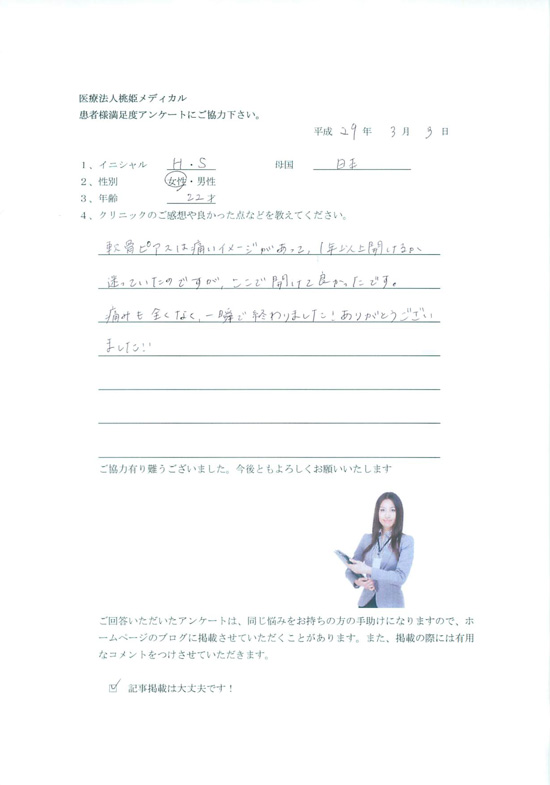 医療法人桃姫メディカル
患者様満足度アンケートにご協力下さい。
平成 29 年 3 月 9 日
1、イニシャル H・S 母国 日本
2、性別 女性・男性
3、年齢 22才
4、クリニックのご感想や良かった点などを教えてください。
軟骨ピアスは痛いイメージがあって、1年以上開けるか
迷っていたのですが、ここで開けて良かったです。
痛みも全くなく、一瞬で終わりました!ありがとうござい
ました!!
ご協力有り難うございました。今後ともよろしくお願いいたします
ご回答いただいたアンケートは、同じ悩みをお持ちの方の手助けになりますので、ホ
ームページのブログに掲載させていただくことがあります。また、掲載の際には有用
なコメントをつけさせていただきます。
☑ 記事掲載は大丈夫です!